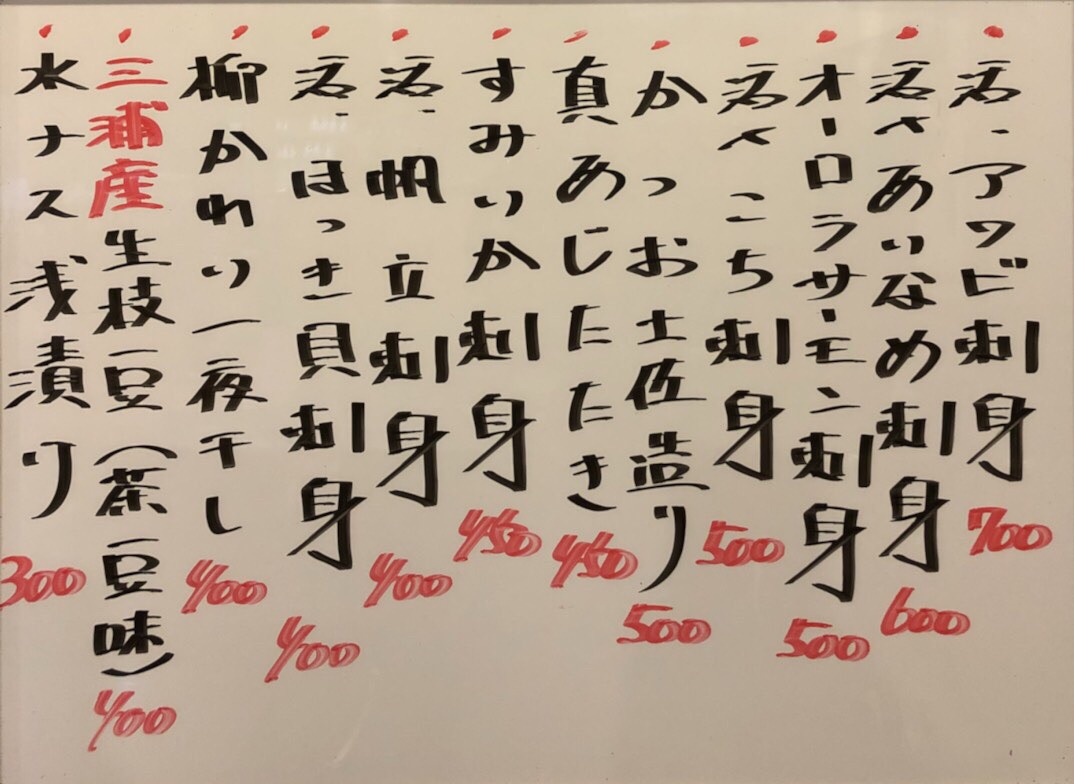 活、アワビ刺身 700
活〆あいなめ刺身 600
オーロラサーモン刺身 500
活〆こち刺身 500
かつお土佐造り 500
真あじたたき 450
すみいか刺身 450
活、帆立刺身 400
活、ほっき貝刺身 400
柳かれい一夜干し 400
三浦産生枝豆(茶豆味) 400
水ナス浅漬り 300